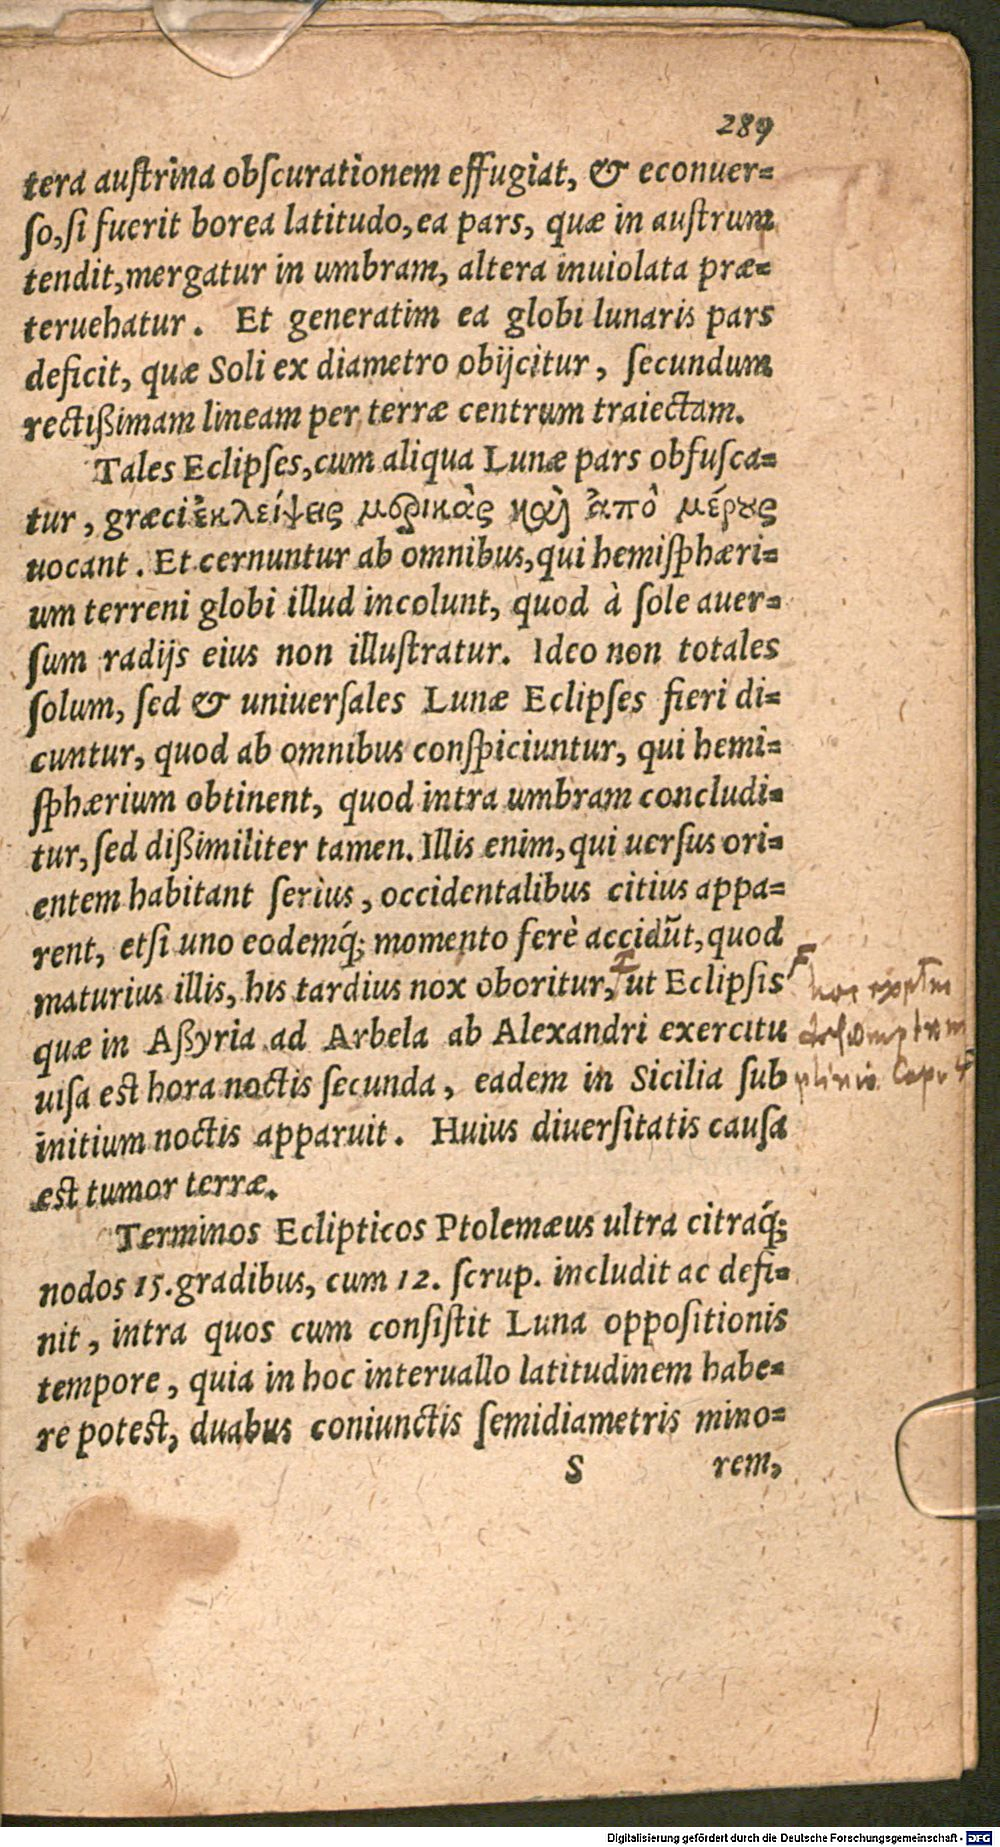 289
tera auſtrina obſcurationem effugiat, & econuer=
ſo, ſi fuerit borea latitudo, ea pars, quæ in auſtrum
tendit, mergatur in umbram, altera inuiolata præ=
teruehatur. Et generatim ea globi lunaris pars
deficit, quæ Soli ex diametro obijcitur, ſecundum
rectißimam lineam per terræ centrum traiectam.
Tales Eclipſes, cum aliqua Lunæ pars obfuſca=
tur, græci ἐκλείψεις μερικὰς καὶ ἀπὸ μέρους
uocant. Et cernuntur ab omnibus, qui hemiſphæri=
um terreni globi illud incolunt, quod à ſole auer=
ſum radijs eius non illuſtratur. Ideo non totales
ſolum, ſed & uniuerſales Lunæ Eclipſes fieri di=
cuntur, quod ab omnibus conſpiciuntur, qui hemi=
ſphærium obtinent, quod intra umbram concludi=
tur, ſed dißimiliter tamen. Illis enim, qui uerſus ori=
entem habitant ſeriùs, occidentalibus citius appa=
rent, etſi uno eodemq́; momento ferè accidũt, quod
maturius illis, his tardius nox oboritur, ut Eclipſis
quæ in Aßyria ad Arbela ab Alexandri exercitu
uiſa est hora noctis ſecunda, eadem in Sicilia ſub
initium noctis apparuit. Huius diuerſitatis cauſa
est tumor terræ.
Terminos Eclipticos Ptolemæus ultra citraq́;
nodos 15. gradibus, cum 12. ſcrup. includit ac defi=
nit, intra quos cum conſiſtit Luna oppoſitionis
tempore, quia in hoc interuallo latitudinem habe=
re potest, duabus coniunctis ſemidiametris mino=
S rem,
hoc
plinio Cap.
Digitalisierung gefördert durch die Deutsche Forschungsgemeinschaft - DFG